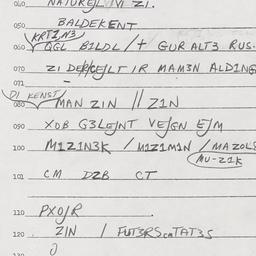 040 NATUREJL IVI ZI.
050 BALDEKENT
KRTIN3
060 QGL B1LDL /+ GUR ALT3 RUS.
070 ZI JLT IR MAM3N ALDING
071
DI KENST
080 MAN ZIN // Z1N
090 XOB G3LEJNT VEJGN EJM
100 M1Z1N3K / M1Z1M1N / MAZOLS
(MU-Z1K
101 CM DZB CT
110 PXOJR
120 ZIN / FUT3RSCMTAT3S
130